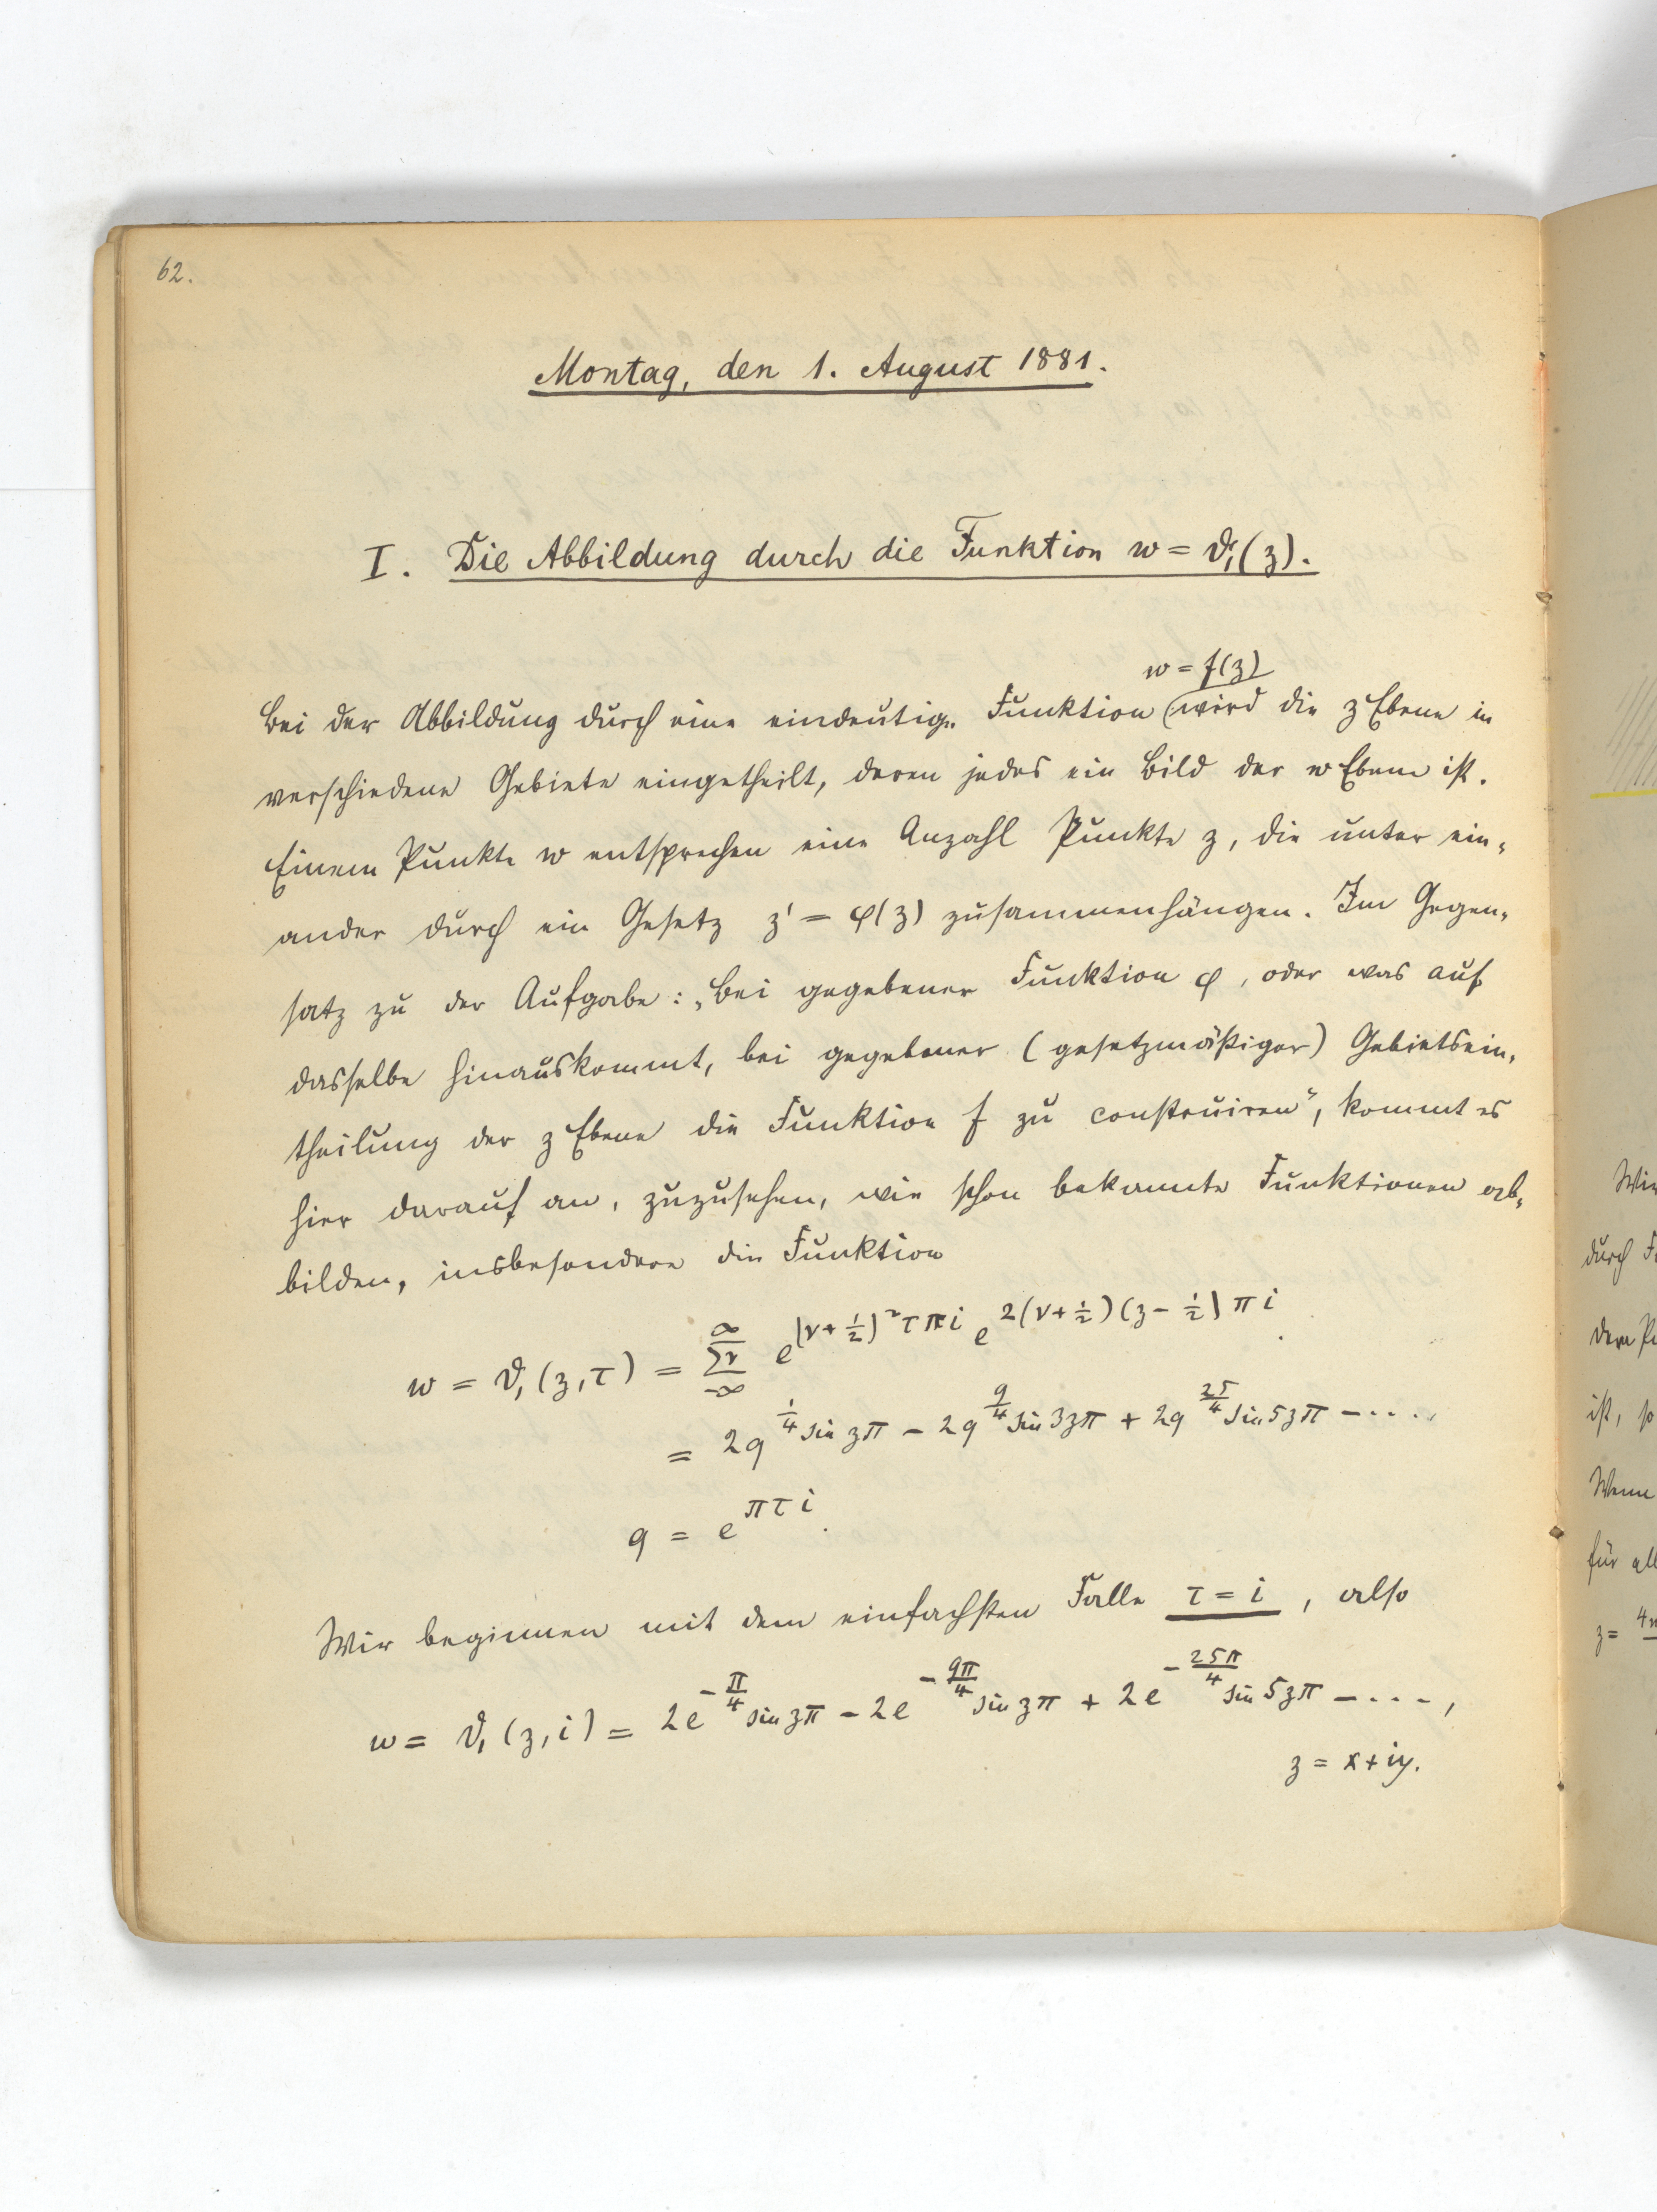 62.
Montag, den 1. August 1881.
I. Die Abbildung durch die Funktion w = ϑ₁(z).
w = f(z)
Bei der Abbildung durch eine eindeutige Funktion wird die z Ebene in
verschiedene Gebiete eingetheilt, deren jedes ein Bild der w Ebene ist.
Einem Punkte w entsprechen eine Anzahl Punkte z, die unter ein-
ander durch ein Gesetz z' = φ(z) zusammenhängen. Im Gegen-
satz zu der Aufgabe: „Bei gegebener Funktion φ, oder was auf
dasselbe hinauskommt, bei gegebener (gesetzmäßiger) Gebietsein-
theilung der z Ebene die Funktion f zu construiren", kommt es
hier darauf an, zuzusehen, wie schon bekannte Funktionen ab-
bilden, insbesondere die Funktion
w = ϑ₁(z, τ) = ∑ν_{-∞}^{∞} e^{(ν+1/2)² τπi} e^{2(ν+1/2)(z-1/2)πi}.
= 2q^{1/4} sin zπ - 2q^{9/4} sin 3zπ + 2q^{25/4} sin 5zπ - ....,
q = e^{πτi}.
Wir beginnen mit dem einfachsten Falle τ = i, also
w = ϑ₁(z, i) = 2e^{-π/4} sin zπ - 2e^{-9π/4} sin zπ + 2e^{-25π/4} sin 5zπ - ....,
z = x + iy.
Wir
durch
ist, so
Wenn
für
z =